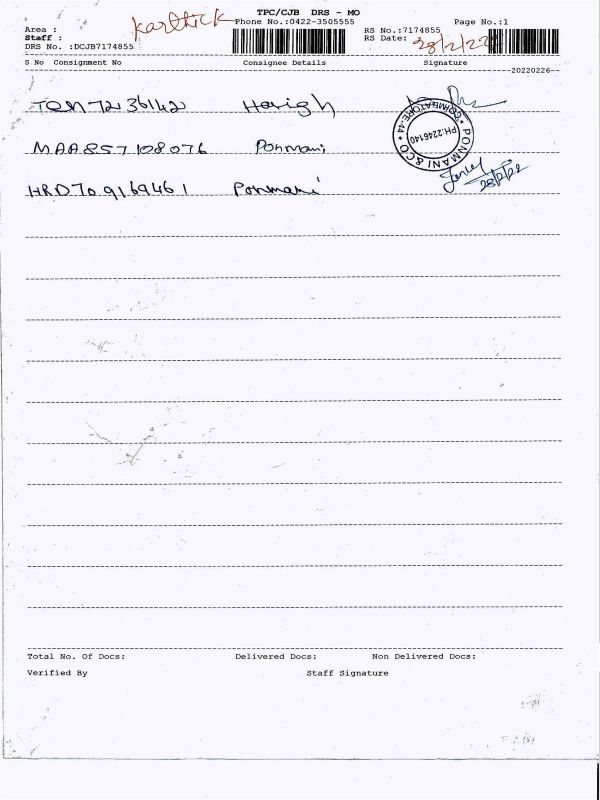 TPC/CJB DRS - MO
Area : Karthick Phone No.:0422-3505555 Page No.:1
Staff : RS No.:7174855
DRS No. :DCJB7174855 RS Date: 28/2/22
S No Consignment No Consignee Details Signature
20220226
72136142 Harish
MAA857108076 Ponmani
HRD709169461 Ponmani
PONMANI & CO * COIMBATORE-44 *
PH:2246140
28/2/22
Total No. Of Docs: Delivered Docs: Non Delivered Docs:
Verified By Staff Signature